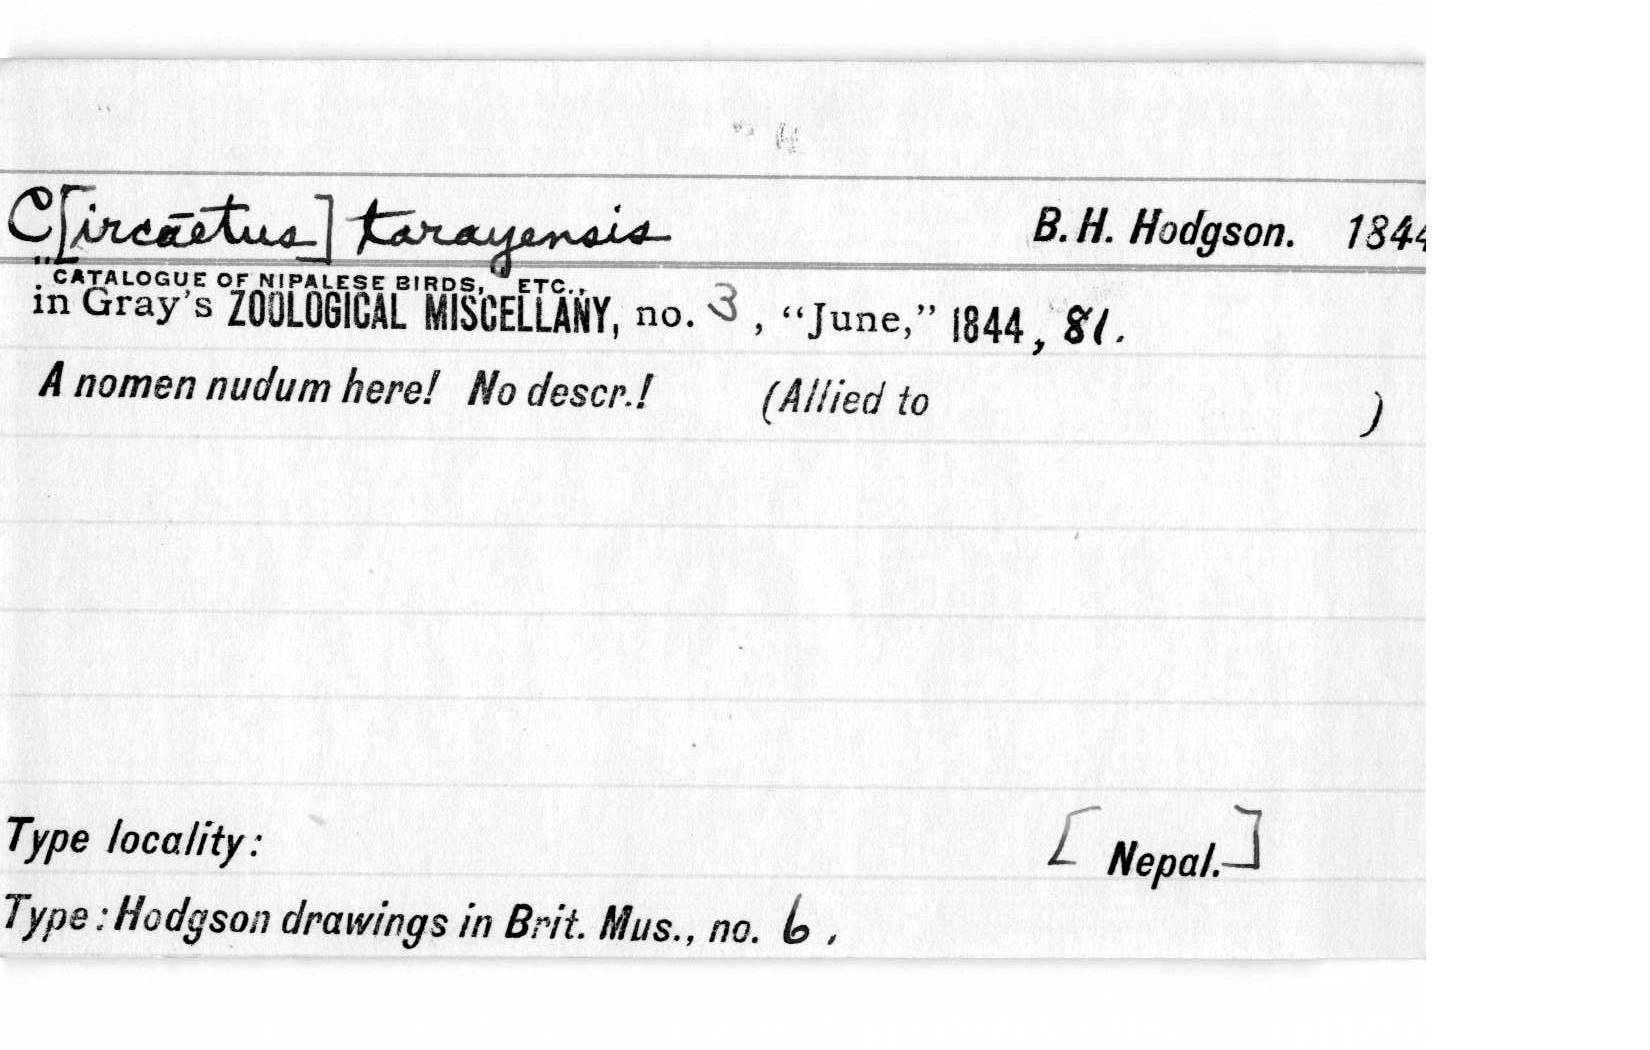 C[ircāetus] tarayensis B. H. Hodgson. 1844
"CATALOGUE OF NIPALESE BIRDS," ETC.,
in Gray's ZOOLOGICAL MISCELLANY, no. 3, "June," 1844, 81.
A nomen nudum here! No descr.! (Allied to )
Type locality: [Nepal.]
Type: Hodgson drawings in Brit. Mus., no. 6.